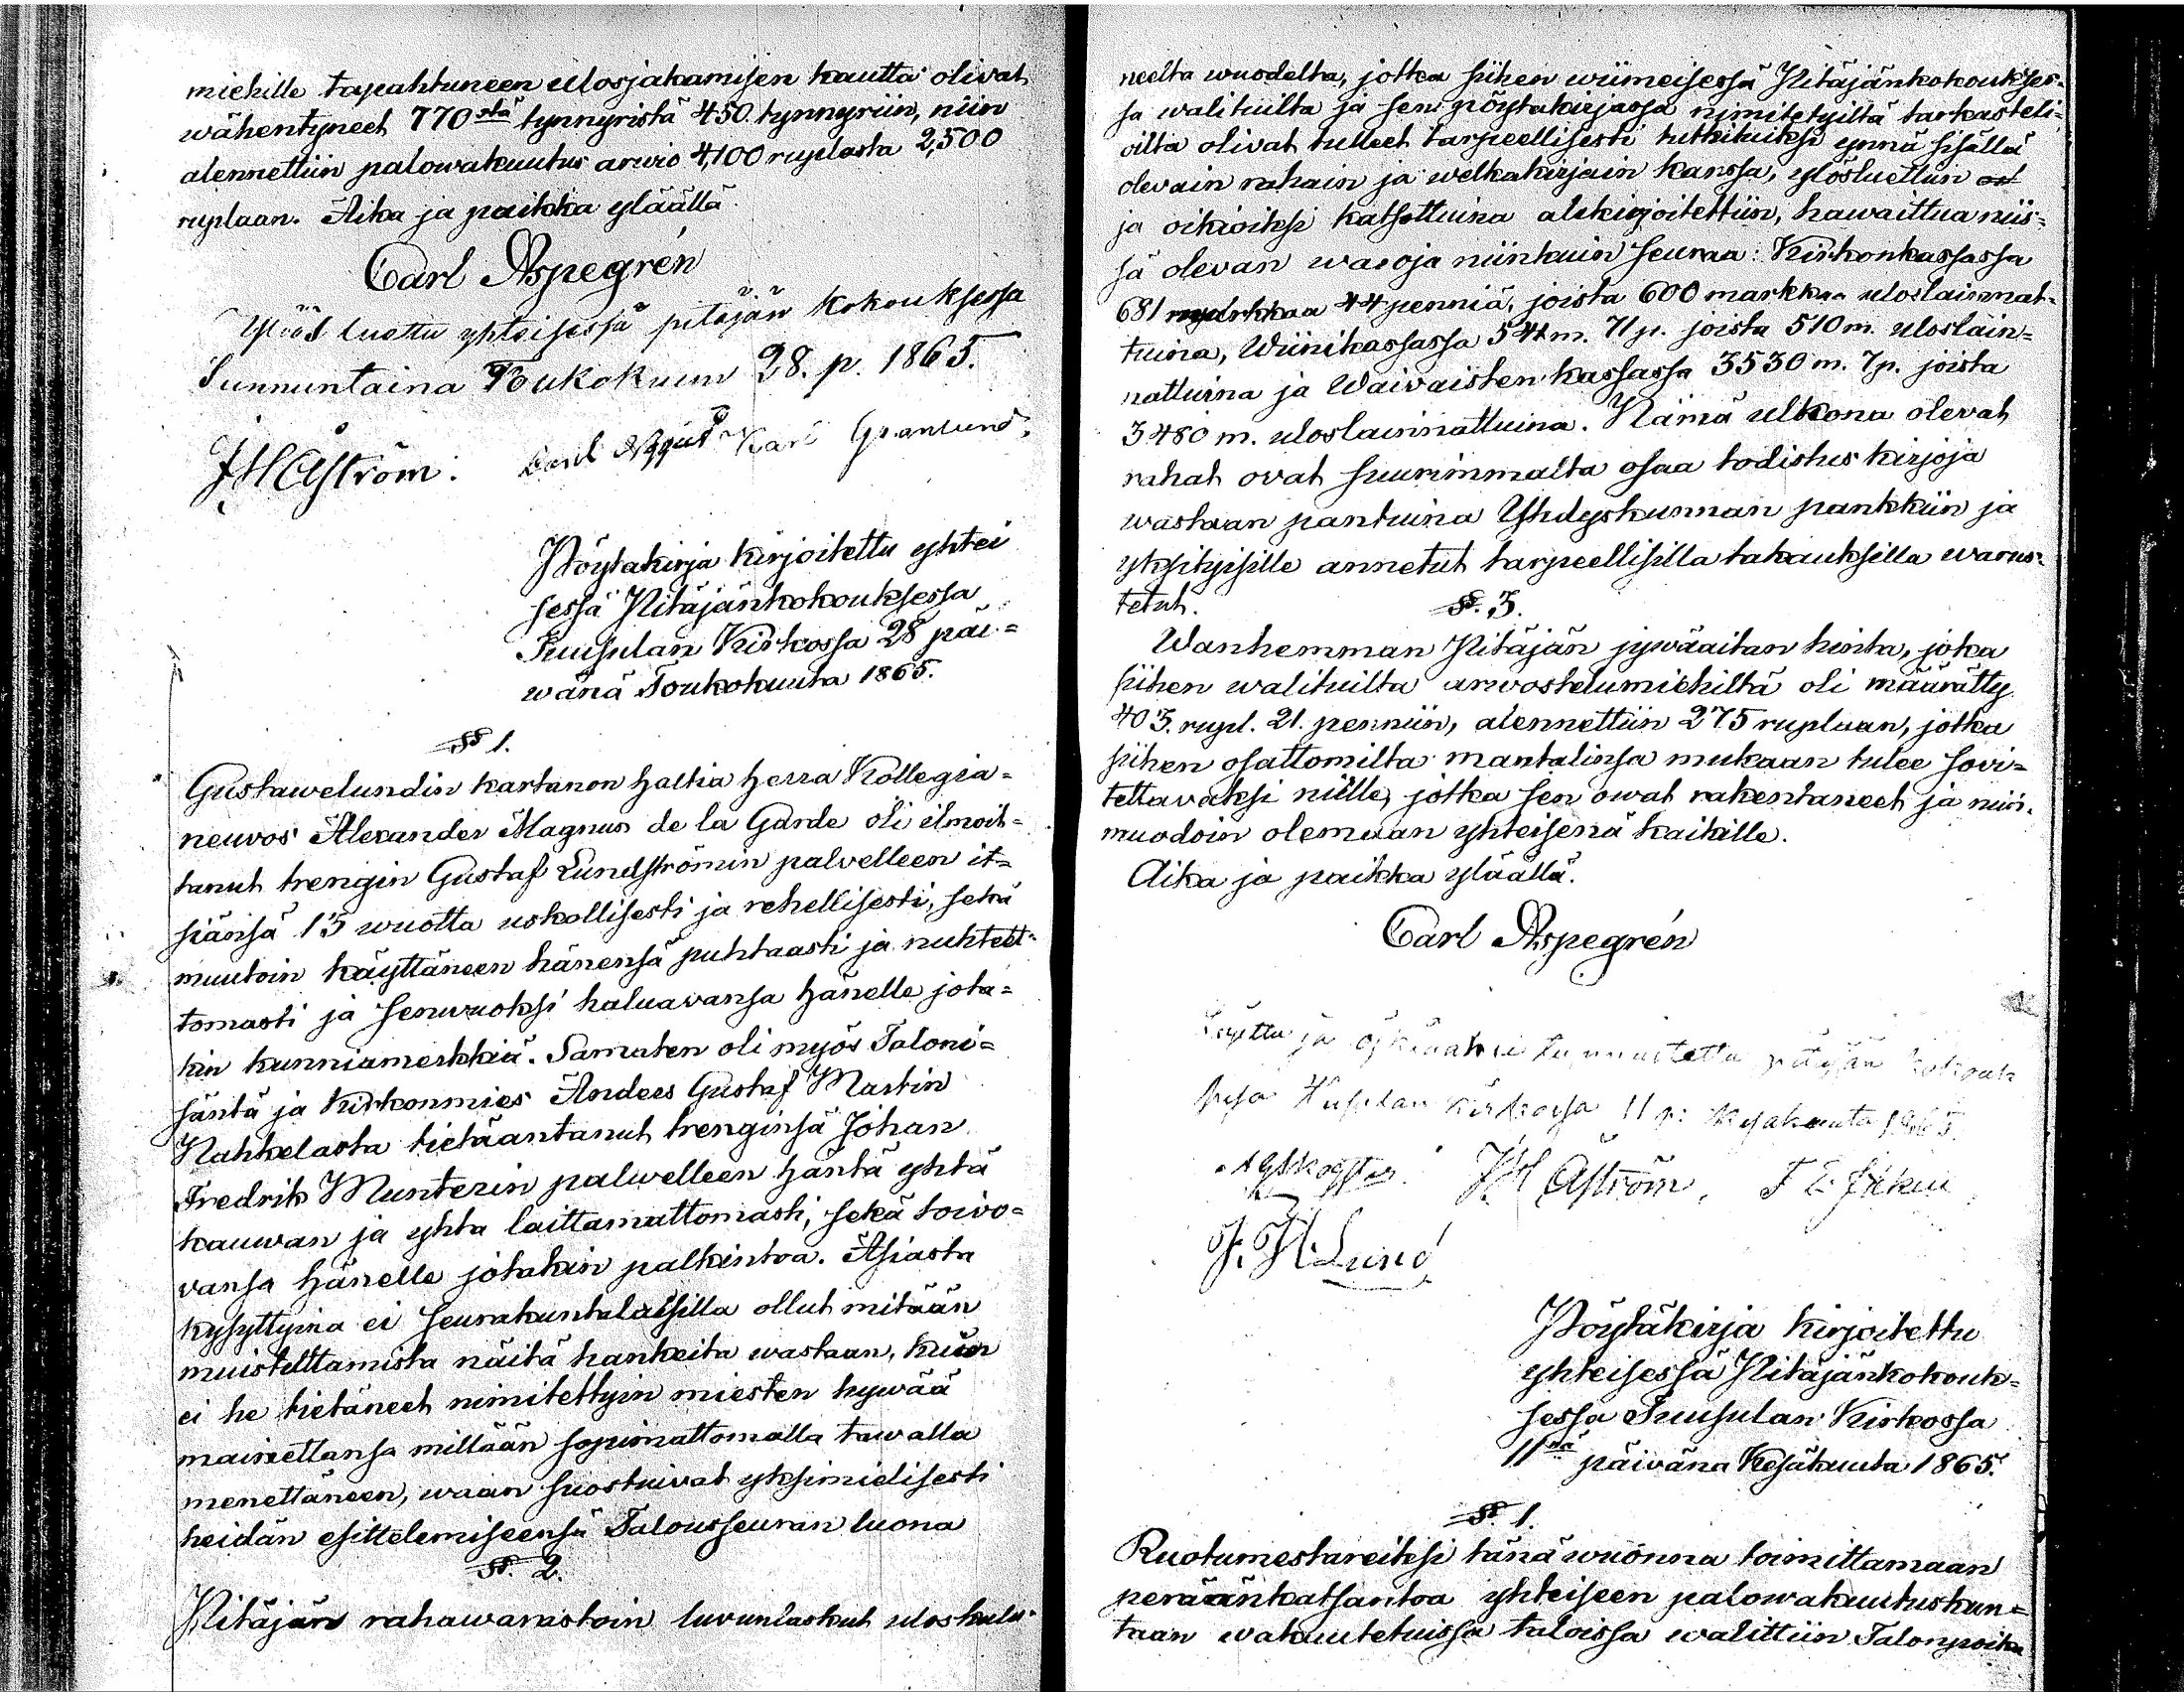 miehille tapahtuneen ulosjakamisen kautta olivat
wähentyneet 770stä tynnyristä 450 tynnyriin, niin
alennettiin palowakuutus arwio 4,100 ruplasta 2,500
ruplaan. Aika ja paikka yläällä
Carl Aspegrén
Ylööd luettu yhteisessä pitäjän kokouksessa
Sunnuntaina Toukokuun 28. p. 1865.
JHÅström. Karl Granlund.
Pöytäkirja kirjoitettu yhtei
sessä Pitäjänkokouksessa
Tuusulan Kirkossa 28 päi=
wänä Toukokuuta 1865.
§§ 1.
Gustawelundin kartanon haltia herra Kollegia=
neuwos Alexander Magnus de la Garde oli ilmoit=
tanut trengin Gustaf Lundströmin palvelleen it=
siänsä 15 wuotta uskollisesti ja rehellisesti, sekä
muutoin käyttäneen hänensä puhtaasti ja nuhtett=
tomasti ja senwuoksi haluavansa hänelle jota=
kin kunniamerkkiä. Samaten oli myös Taloni=
säntä ja Kirkonmies Anders Gustaf Martin
Nahkelasta tietäantanut trenginsä Johan
Fredrik Munterin palwelleen häntä yhtä
kauwan ja yhta laittamattomasti, sekä toivo=
vansa hänelle jotakin palkintoa. Asiasta
kysyttyina ei seurakuntalaisilla ollut mitään
muistuttamista näitä hankeita wastaan, kuin
ei he tietäneet nimitettyin miesten hywää
mainettansa millään sopimattomalla tawalla
menettäneen, waan suostuivat yksimielisesti
heidän esittelemiseensä Talousseuran luona
§§. 2.
Pitäjän rahawarastoin luvunlaskut uloskulu=
neelta wuodelta, jotka siihen wiimeisessä Pitäjänkokoukses=
sa walituilta ja sen pöytakirjassa nimitetyiltä tarkasteli=
oilta olivat tulleet tarpeellisesti tutkituiksi ynnä sisällä
olevain rahain ja welkakirjain kanssa, ylösluettiin
ja oikioiksi katsottuina alekirjoitettiin, hawaittua niis=
sä olevan waroja niinkuin seuraa: Kirkonkassassa
681 markkaa 44 penniä, joista 600 markkaa uloslainnat=
tuina, Wiinikassassa 541 m. 71 p. joista 510 m. uloslain=
nattuina ja Waivaisten kassassa 3530 m. 7 p. joista
3480 m. uloslainnattuina. Nämä ulkona olevat
rahat ovat suurimmalta osaa todistus kirjoja
wastaan pantuina Yhdyskunnan pankkiin ja
yksityisille annetut tarpeellisilla takauksilla warus=
tetut.
§§. 3.
Wanhemman Pitäjän jywäaitan hinta, joka
siihen walituilta arwostelumiehiltä oli määrätty
403. rupl. 21. penniin, alennettiin 275 ruplaan, jotka
siihen osattomilta mantalinsa mukaan tulee sovi=
tettavaksi niille, jotka sen owat rakentaneet ja niin
muodoin olemaan yhteisenä kaikille.
Aika ja paikka yläällä.
Carl Aspegrén
Luettu ja tunnustettu pitäjän kokouk
sesa Tuusulan kirkossa 11 p: kesakuuta 1865.
JH Åström,
J. H. Lund
Pöytäkirja kirjoitettu
yhteisessä Pitäjänkokouk=
sessa Tuusulan Kirkossa
11tä päivänä Kesäkuuta 1865.
§§. 1.
Ruotumestareiksi tänä wuonna toimittamaan
peräänkatsantoa yhteiseen palowakuutuskun=
taan wakuutetuissa taloissa walittiin Talonpoika